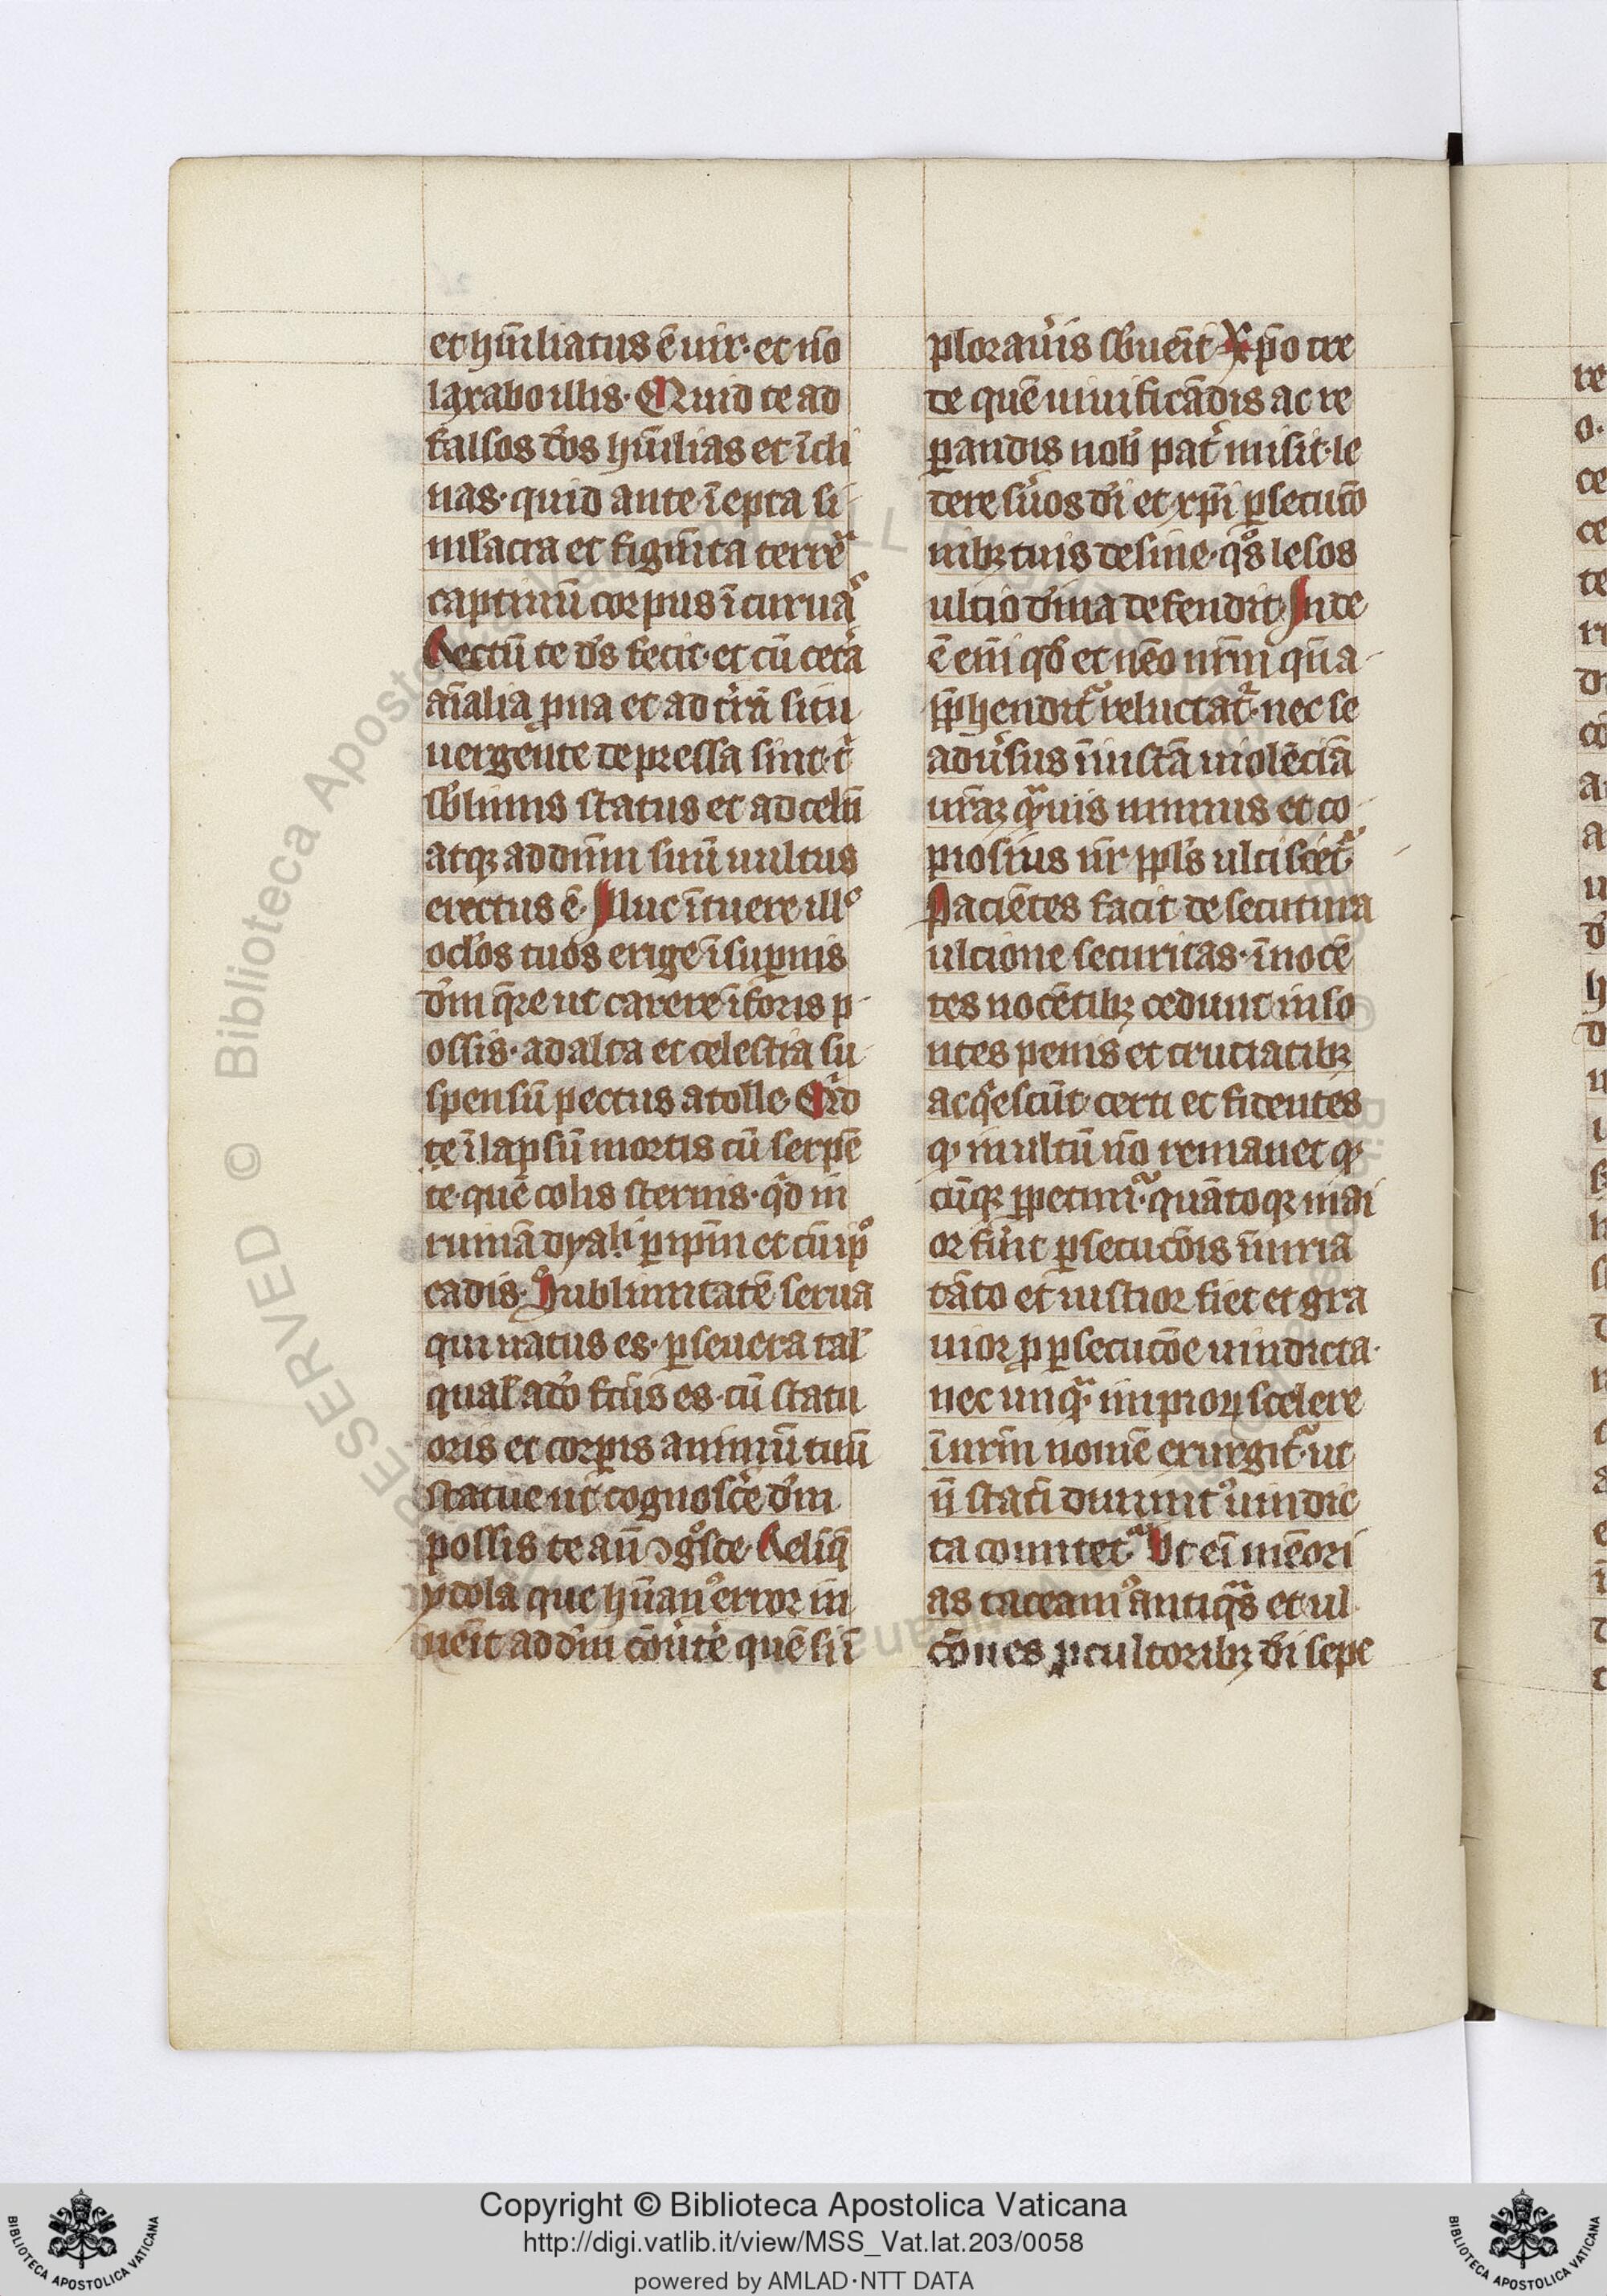 et hūiliatus ē uir· et nō
laxabo illis· Quid te ad
falsos dōs hūilias et īcli
nas· quid ante īepta si
mlacra et figm̄ta terrē
captiuū corpus īcuruas
Rectū te ds̄ fecit· et cū cetā
aīalia ꝓna et ad trā situ
uergente depressa sint· t
sb̄limis status et ad celū
atqꝫ ad dn̄m suū uultus
erectus ē· Illuc ītuere illo
oclos tuos erige ī suꝑnis
dm̄ q̄re ut carere īferis p
ossis· ad alta et celestia su
spensū pectus atolle Quid
te ī lapsū mortis cū serpē
te· quē colis sternis· qd̄ in
ruinā dyaboli ꝑ ip̄m et cū ip̄o
cadis· Sublimitatē serua
qui natus es· ꝑseuera tal'
qual' a do fc̄us es· cū statu
oris et corꝑis animū tuū
statue ut cognosc̄e dm̄
possis te an̄ ꝯgosce· Reliq̄
ydola que hūan⁹ error in
uēit ad dm̄ cōu̾te quē si ī
plorau̾is sb̄uēit Xp̄o cre
de quē uiuificādis ac re
ꝑandis nob̄ pat̾ misit· le
dere s̾uos dī et xp̄i ꝑsecutō
nibꝫ tuis desine· qos lesos
ultio dīna defendit· Inde
ē eīn qd̄ et nēo nr̄m qn̄a
p̄p̄hendit̾ reluctat̾· nec se
adu̾sus īiustā uiolēciā
ur̄aꝫ quis nimius et co
piosius nr̄ ppl̄s ulciscet̾
Paciētes facit de secutura
ulcione securitas· īnocē
tes nocētibꝫ cedunt inso
ntes penis et cruciatibꝫ
acq̾escūt· certi et fidentes
qꝫ inultū nō remanet qꝫ
cūqꝫ ꝑpetim̾· quātoqꝫ mai
or fu̾it ꝑsecucōis īiuria
tāto et iustior fiet et gra
uior ꝓ ꝑsecucōe uindicta·
nec unqa impioꝝ scelere
ī nr̄m nomē exurgit̾ ut
n̄ statī diuinit⁹ uindic
ta comitet̾ Ut eī mēori
as taceam⁹ antiqas et ul
cōnes ꝓ cultoribꝫ dī sepe
Copyright © Biblioteca Apostolica Vaticana
http://digi.vatlib.it/view/MSS_Vat.lat.203/0058
powered by AMLAD·NTT DATA
BIBLIOTECA APOSTOLICA VATICANA
BIBLIOTECA APOSTOLICA VATICANA